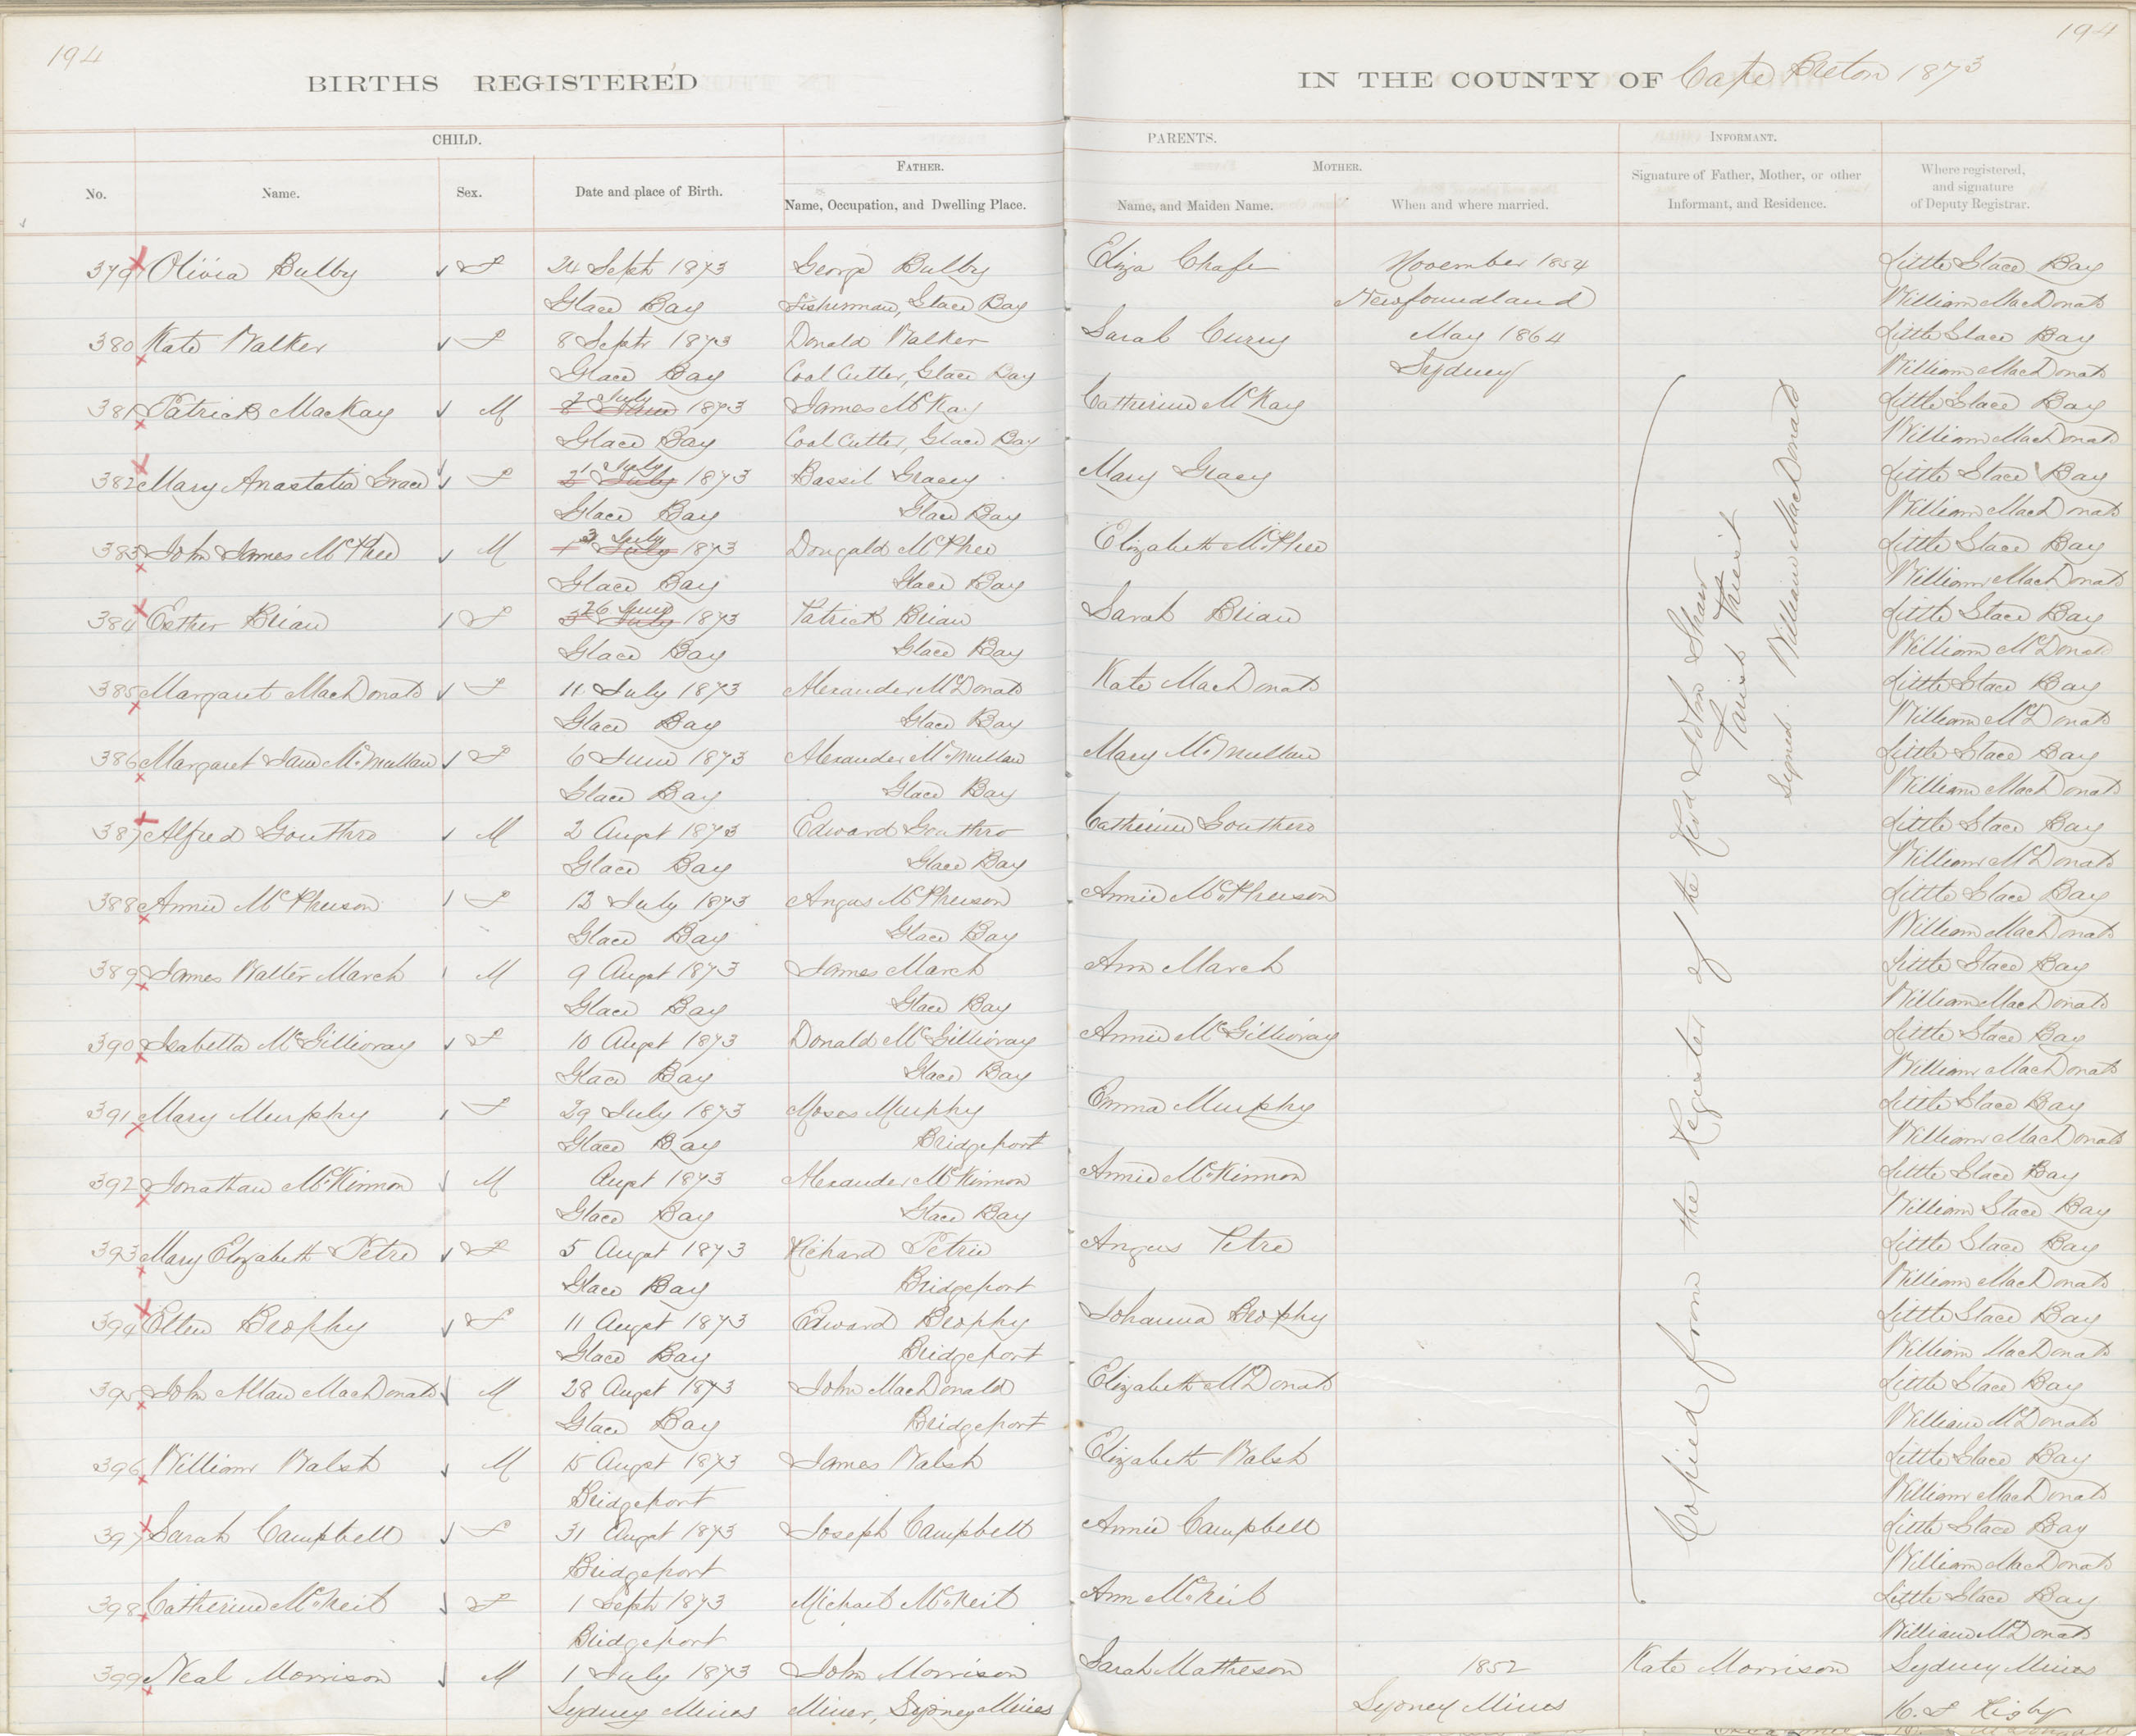 194
194
BIRTHS REGISTERED
IN THE COUNTY OF Cape Breton 1873
CHILD.
PARENTS.
INFORMANT.
FATHER.
MOTHER.
No.
Name.
Sex.
Date and place of Birth.
Name, Occupation, and Dwelling Place.
Name, and Maiden Name.
When and where married.
Signature of Father, Mother, or other
Informant, and Residence.
Where registered,
and signature
of Deputy Registrar.
379 Olivia Bulby F 24 Sept 1873 George Bulby Eliza Chafe November 1854 Little Glace Bay
Glace Bay Fisherman, Glace Bay Newfoundland William MacDonald
380 Kate Walker F 8 Septr 1873 Donald Walker Sarah Curry May 1864 Little Glace Bay
Glace Bay Coal Cutter, Glace Bay Sydney William MacDonald
381 Patrick MacKay M 2 July 1873 James McKay Catherine McKay Little Glace Bay
Glace Bay Coal Cutter, Glace Bay William MacDonald
382 Mary Anastatia Grace F 1 July 2 July 1873 Bassil Gracey Mary Gracey Little Glace Bay
Glace Bay Glace Bay William MacDonald
383 John James McPhee M 3 July 1 July 1873 Dougald McPhee Elizabeth McPhee Little Glace Bay
Glace Bay Glace Bay William MacDonald
384 Esther Brian F 26 June 3 July 1873 Patrick Brian Sarah Brian Little Glace Bay
Glace Bay Glace Bay William McDonald
385 Margaret MacDonald F 11 July 1873 Alexander McDonald Kate MacDonald Little Glace Bay
Glace Bay Glace Bay William McDonald
386 Margaret Jane McMullan F 6 June 1873 Alexander McMullan Mary McMullan Little Glace Bay
Glace Bay Glace Bay William MacDonald
387 Alfred Gouthro M 2 Augst 1873 Edward Gouthro Catherine Gouthro Little Glace Bay
Glace Bay Glace Bay William McDonald
388 Annie McPherson F 12 July 1873 Angus McPherson Annie McPherson Little Glace Bay
Glace Bay Glace Bay William MacDonald
389 James Walter March M 9 Augst 1873 James March Ann March Little Glace Bay
Glace Bay Glace Bay William MacDonald
390 Isabella McGillivray F 10 Augst 1873 Donald McGillivray Annie McGillivray Little Glace Bay
Glace Bay Glace Bay William MacDonald
391 Mary Murphy F 29 July 1873 Moses Murphy Emma Murphy Little Glace Bay
Glace Bay Bridgeport William MacDonald
392 Jonathan McKinnon M Augst 1873 Alexander McKinnon Annie McKinnon Little Glace Bay
Glace Bay Glace Bay William Glace Bay
393 Mary Elizabeth Petre F 5 Augst 1873 Richard Petrie Angus Petre Little Glace Bay
Glace Bay Bridgeport William MacDonald
394 Ellen Brophy F 11 Augst 1873 Edward Brophy Johanna Brophy Little Glace Bay
Glace Bay Bridgeport William MacDonald
395 John Allan MacDonald M 28 Augst 1873 John MacDonald Elizabeth McDonald Little Glace Bay
Glace Bay Bridgeport William McDonald
396 William Walsh M 15 Augst 1873 James Walsh Elizabeth Walsh Little Glace Bay
Bridgeport William MacDonald
397 Sarah Campbell F 31 Augst 1873 Joseph Campbell Annie Campbell Little Glace Bay
Bridgeport William MacDonald
398 Catherine McNeil F 1 Septr 1873 Michael McNeil Ann McNeil Little Glace Bay
Bridgeport William McDonald
399 Neal Morrison M 1 July 1873 John Morrison Sarah Matheson 1852 Kate Morrison Sydney Mines
Sydney Mines Miner, Sydney Mines Sydney Mines Rigby
Copied from the Register of the Revd John Shaw
Parish Priest
Signed. William MacDonald